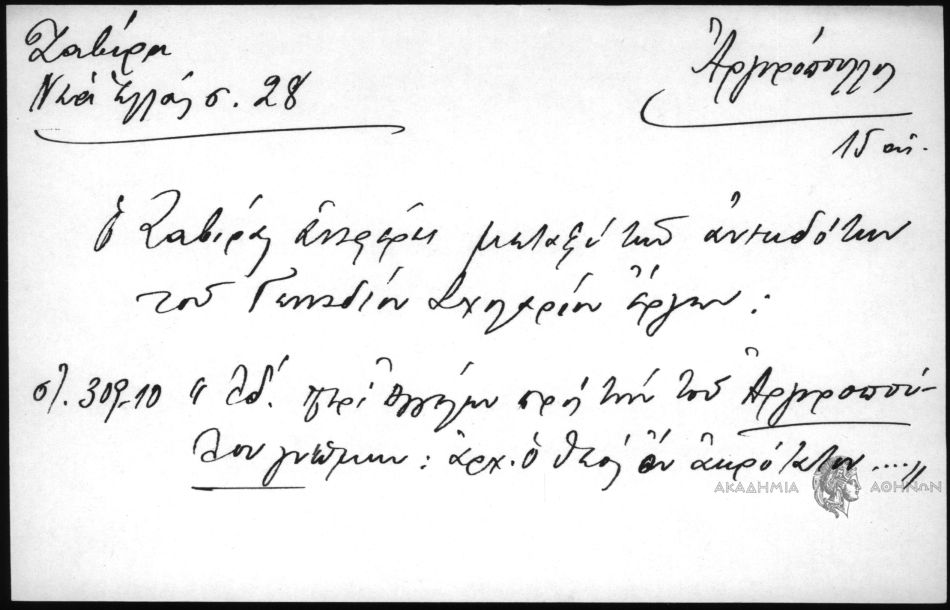 Ζαβίρα
Νέα Ἑλλάς σ. 28
Ἀργυρόπουλος
15 αἰ.
Ὁ Ζαβίρας ἀναφέρει μεταξὺ τῶν ἀνεκδότων
τοῦ Γενναδίου Σχολαρίου ἔργων :
σλ. 309-10 " λδ'. περὶ Ἀγγέλων πρὸς τὴν τοῦ Ἀργυροπού-
λου γνώμην : ἀρχ. ὁ θεὸς ὂν ἀκρότατον ...."
ΑΚΑΔΗΜΙΑ ΑΘΗΝΩΝ